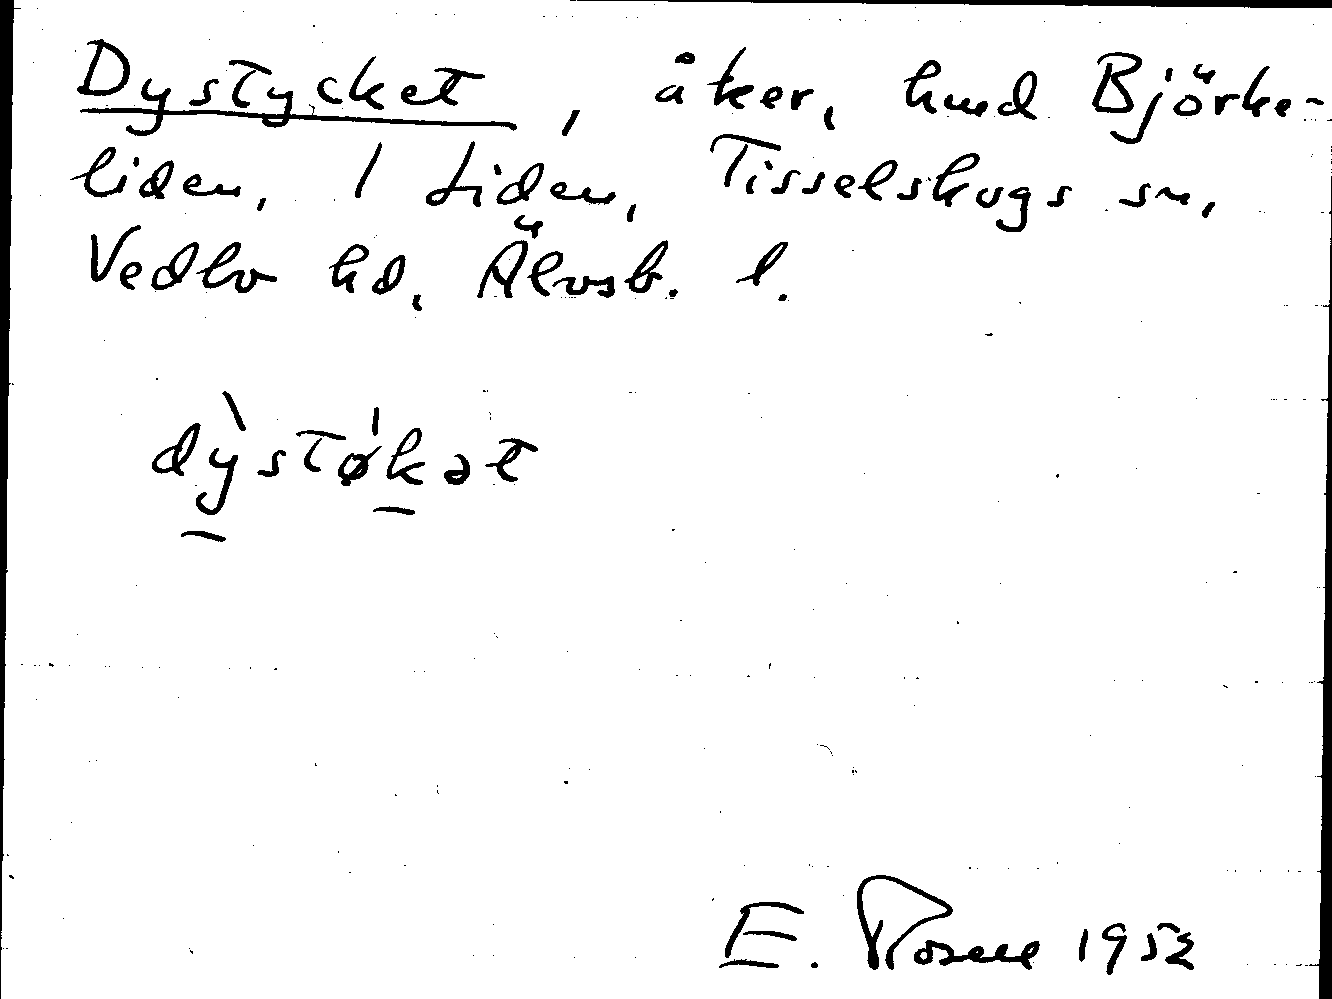 Dystycket, åker, hmd Björke-
liden, 1 Liden, Tisselskogs sn,
Vedbo hd, Älvsb. l.
dỳ̱støˈḵət
E. Rosell 1952